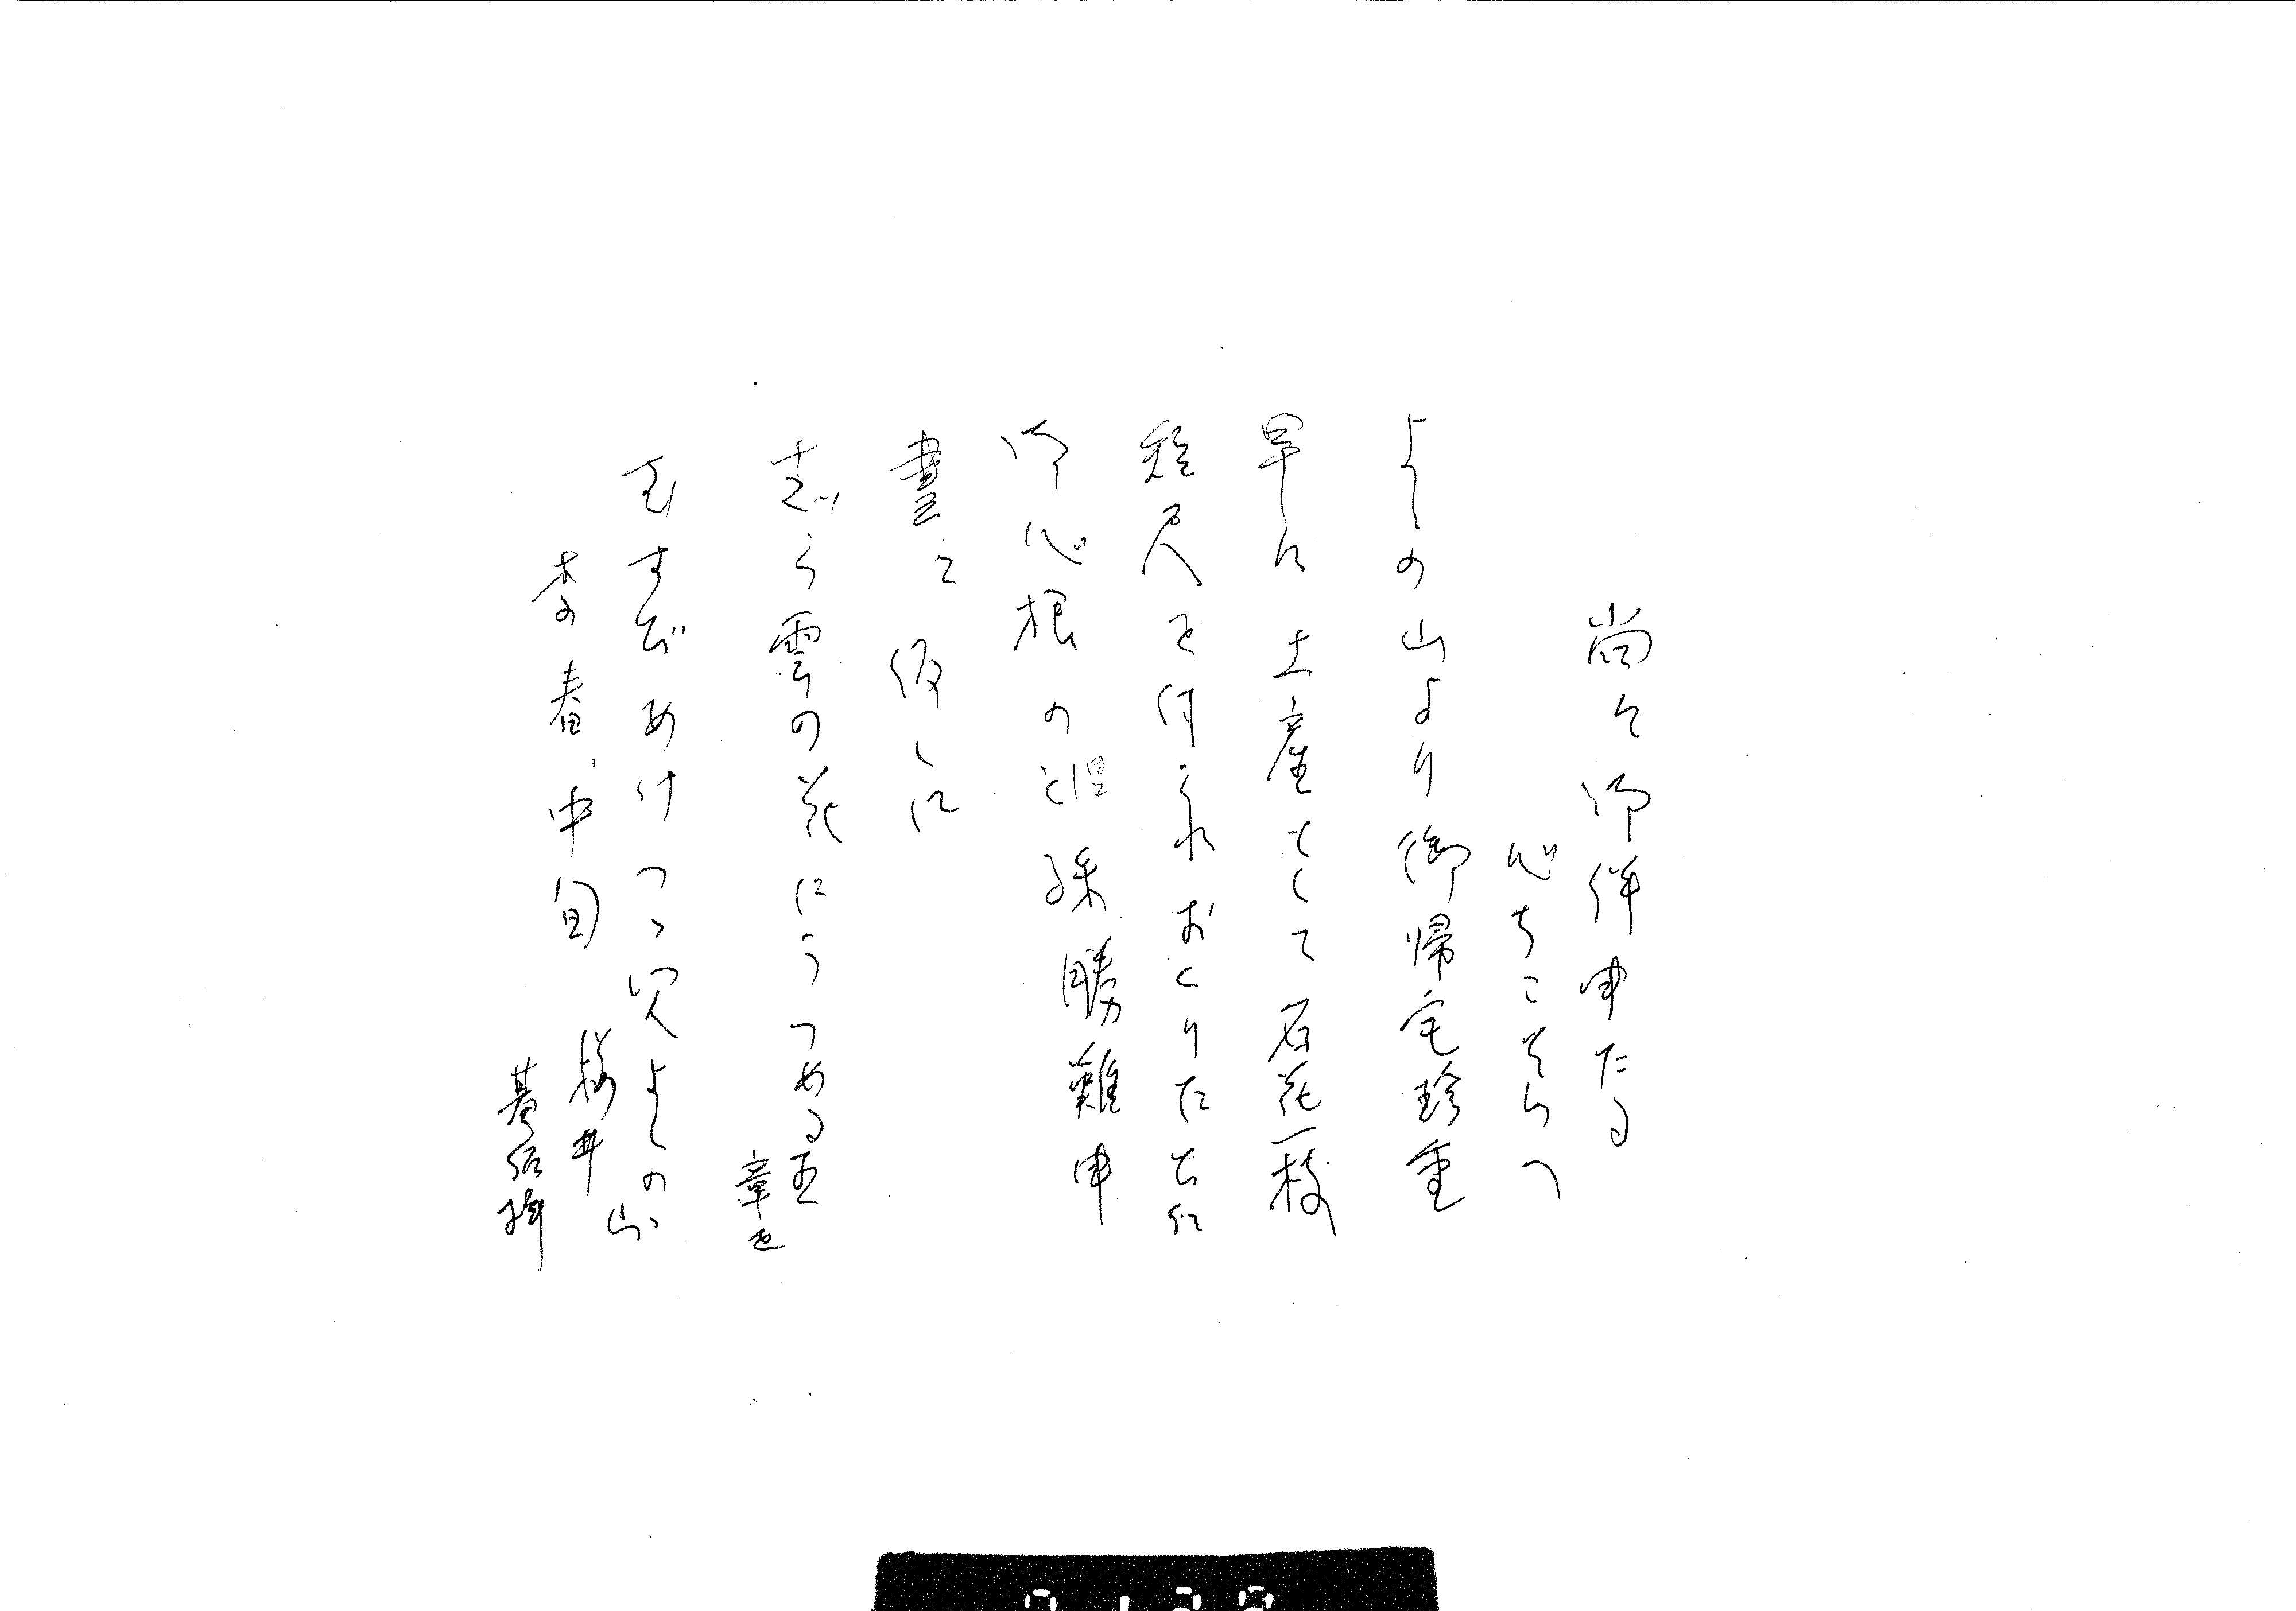 尚々御伴申たる
心ちこそらへ
よしの山より御帰宅珍重
早に土産とくて石花一枝
短尺を付られおくりたち仁
御心根の程殊勝難申
書之仮しに
志ら雲の花にうつめる玉
章を
むすびあけつゝ見よしの山
季春中旬
梅井
基佐拝